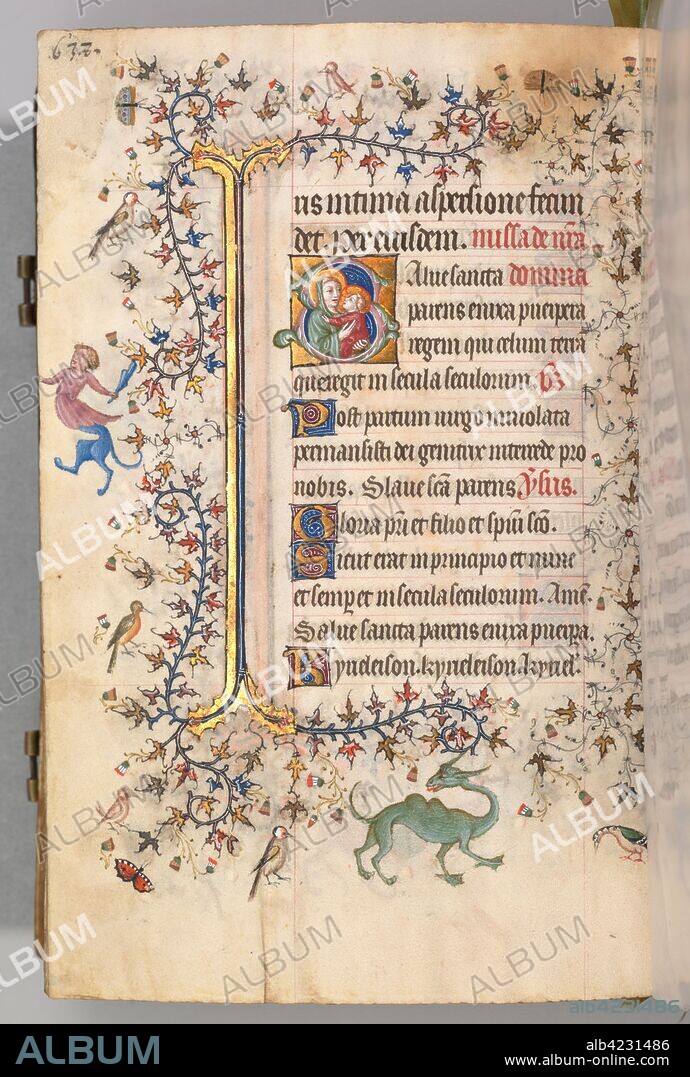 632.
ris intima aspersione fecun
det. Per eiusdem. missa de nr̄a
Salue sancta domina
parens enixa puerpera
regem qui celum terrā
que regit in secula seculorum. ℣
Post partum uirgo inuiolata
permansisti dei genitrix intercede pro
nobis. Salue scā parens ℣sus.
Gloria pr̄i et filio et spūi scō.
Sicut erat in principio et nunc
et semp̱ et in secula seculorum. Amē.
Salue sancta parens enixa puerpa.
kyrieleison. kyrieleison. kyriel'.
ALBUM
alb4231486
www.album-online.com